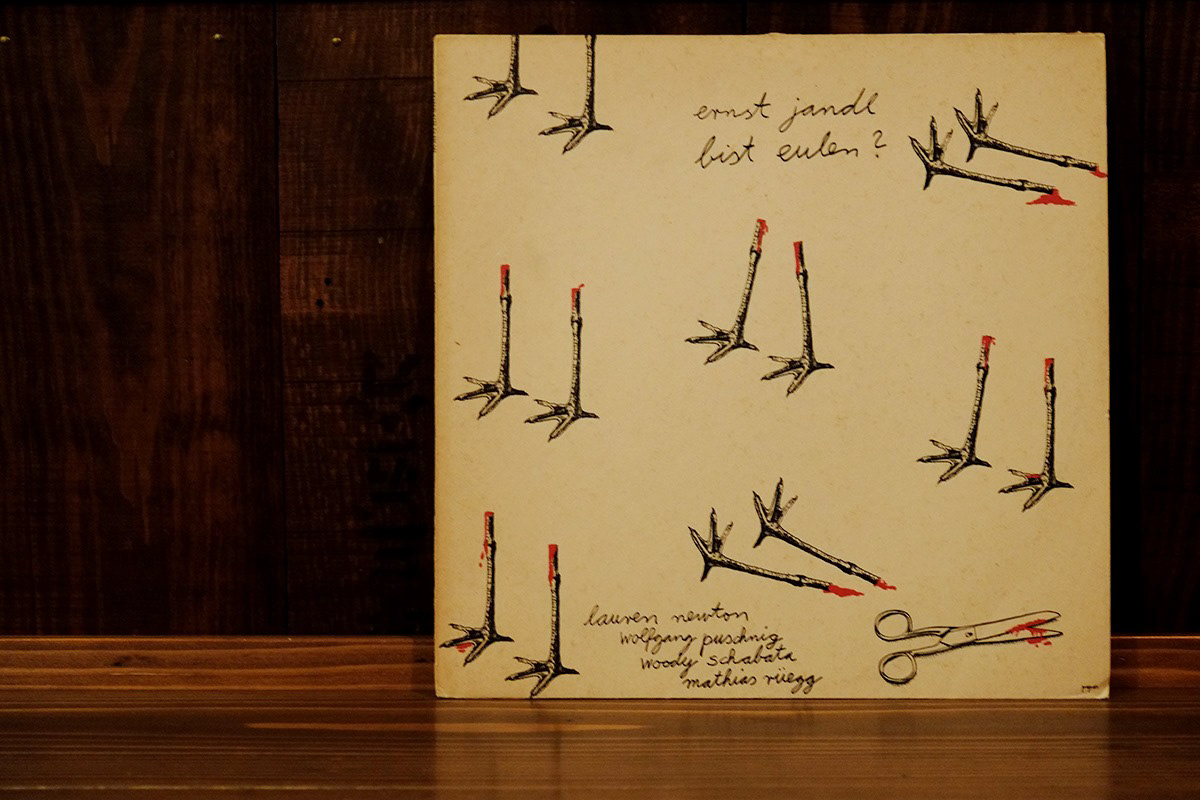 ernst jandl
bist eulen?
lauren newton
wolfgang puschnig
woody schabata
mathias rüegg